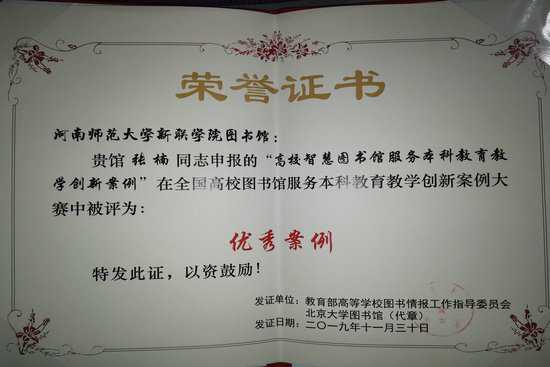 荣誉证书
河南师范大学新联学院图书馆：
贵馆张楠同志申报的“高校智慧图书馆服务本科教育教
学创新案例”在全国高校图书馆服务本科教育教学创新案例大
赛中被评为：
优秀案例
特发此证，以资鼓励！
发证单位：教育部高等学校图书情报工作指导委员会
北京大学图书馆（代章）
发证日期：二〇一九年十一月三十日